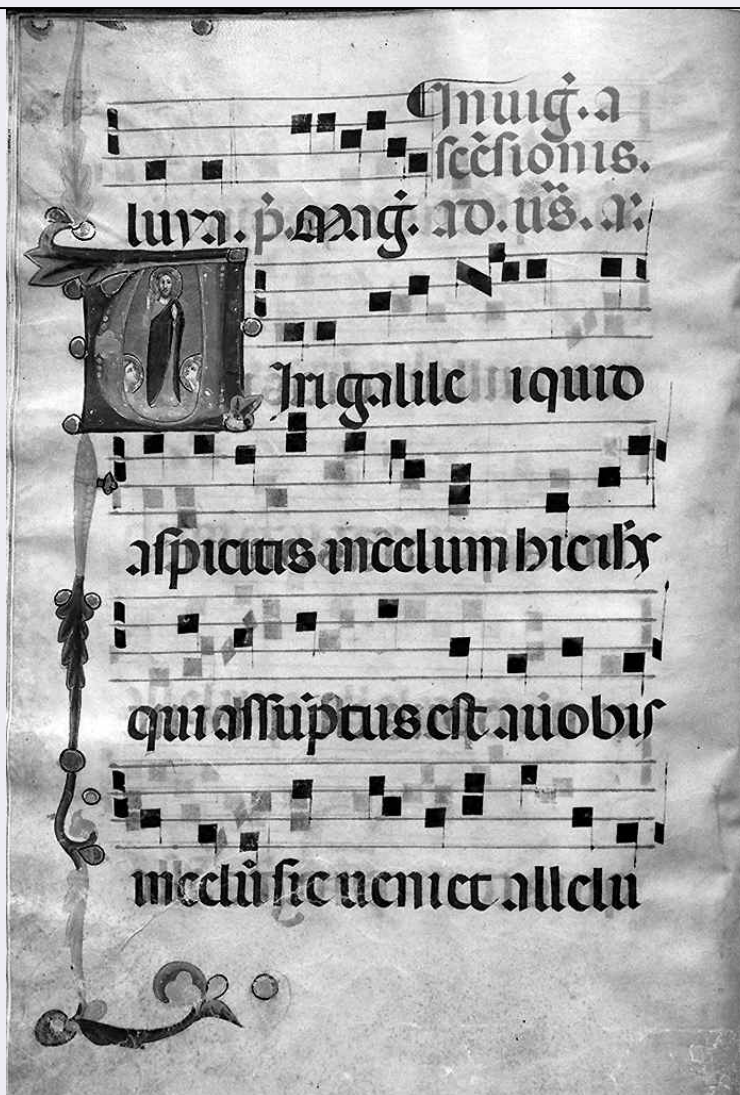 In uiġ. a
scēsionis.
luya. ṗ. Maġ. ad. ūs. a:
Viri galile i quid
aspicitis incelum hic ihs̄
qui assūptus est auobis
incelū sic ueniet allelu